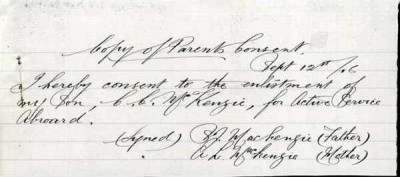 Copy of Parents Consent.
Sept 12th /16
I hereby consent to the enlistment of
my Son, C. C. McKenzie, for Active Service
Abroard.
(Signed) R J. MacKenzie (Father)
A L. McKenzie (Mother)